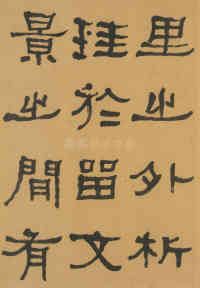 里之外析
珪於留文
景之間有